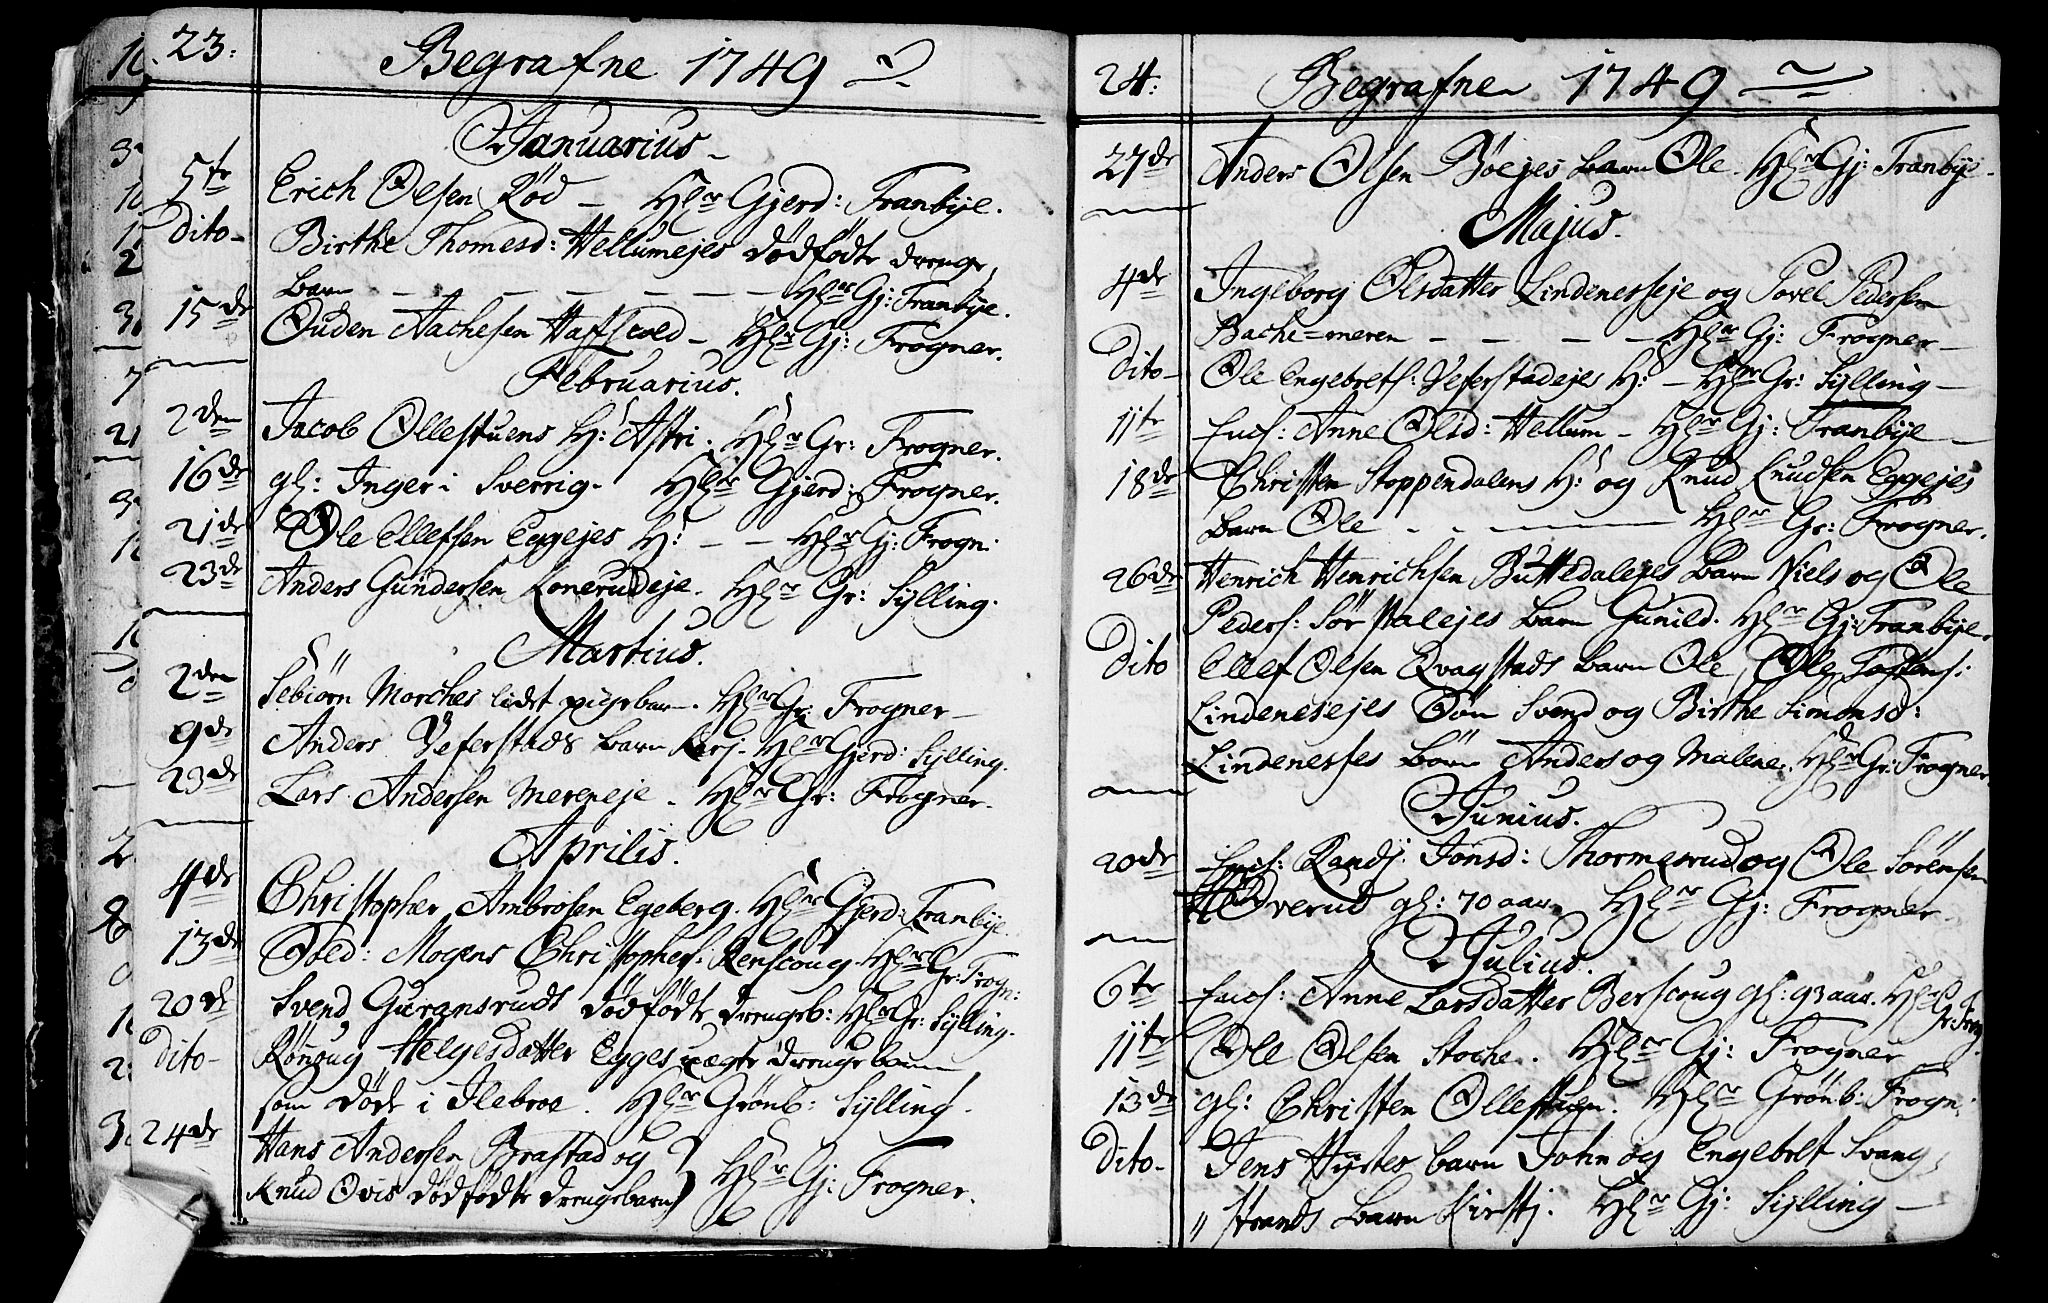 23:
Begrafne 1749
Januarius
5te Erich Olsen Rød – Hl:r Gjerd: Franbye.
Dito – Birthe Thomesd: Hellumejes dødfødte drenge,
barn – – – – – – Hl:r Gj: Franbye.
15de Ouden Aachesen Haffscold – Hl:r Gj: Frogner.
Februarius.
2den Jacob Ollestuens H: Astri. Hl:r Gr: Frogner.
16de gl: Inger i Sverrig. Hl:r Gjerd: Frogner.
21de Ole Ellefsen Eggejes H: – – Hl:r Gj: Frogn:
23de Anders Gundersen Konerudeje. Hl:r Gr: Sylling.
Martius.
2den Sebiørn Morches lidet pigebarn. Hl:r Gr: Frogner –
9de Anders Veferstads barn Hl:r Gjerd: Sylling.
23de Lars Andersen Mereneje – Hl:r Gr: Frogner.
Aprilis.
4de Christopher Ambrosen Egeberg. Hl:r Gjerd: Franbye
13de Sold: Mogens Christophers: Renscoug. Hl:r Gr: Frogn:
20de Svend Guransruds dødfødte drengeb: Hl:r Gr: Sylling.
Dito – Rønoug Helgesdatter Egges uægte drengebarn
som døde i Ilebroe. Hl:r Grønb: Sylling.
24de Hans Andersen Brastad og
Knud Ovis dødfødte drengebarn Hl:r Gj: Frogner.
24:
Begrafne 1749
27de Anders Olsen Bøejes barn Ole. Hl:r Gj: Franbye –
Majus.
4de Ingeborg Olsdatter Lindenesseje og Povel Pedersen
Bache=meren – – – – Hl:r Gj: Frogner –
Dito – Ole Engebrets: Veferstadejes H: – Hl:r Gr: Sylling –
11te Encf: Anne Olsd: Hellum – Hl:r Gj: Franbye –
18de Christen Stoppendalens H: og Knud Knudsen Eggejes
barn Ole – – – Hl:r Gr: Frogner.
26de Henrich Henrichsen Buttedalejes barn Niels og Ole
Peders: Sørstalejes barn Gunild. Hl:r Gj: Franbye.
Dito Ellef Olsen Qvagstads barn Ole, Ole Tostens:
Lindenesejes Søn Svend og Birthe Simonsd:
Lindenesses børn Anders og Malene. Hl:r Gr: Frogner.
Junius.
20de Encf: Randj Jonsd: Thormesrud og Ole Sørensen
Overud gl: 70 aar Hl:r Gj: Frogner
Julius.
6te Encf: Anne Larsdatter Berscoug gl: 93 aar. Hl:r
Gr: Frog:
11te Ole Olsen Stoche. Hl:r Gj: Frogner
13de gl: Christen Ollestuen. Hl:r Grønb: Frogn:
Dito – Jens Hyttes barn John og Engebret Svang,
„ strands barn Kirstj. Hl:r Gj: Sylling –